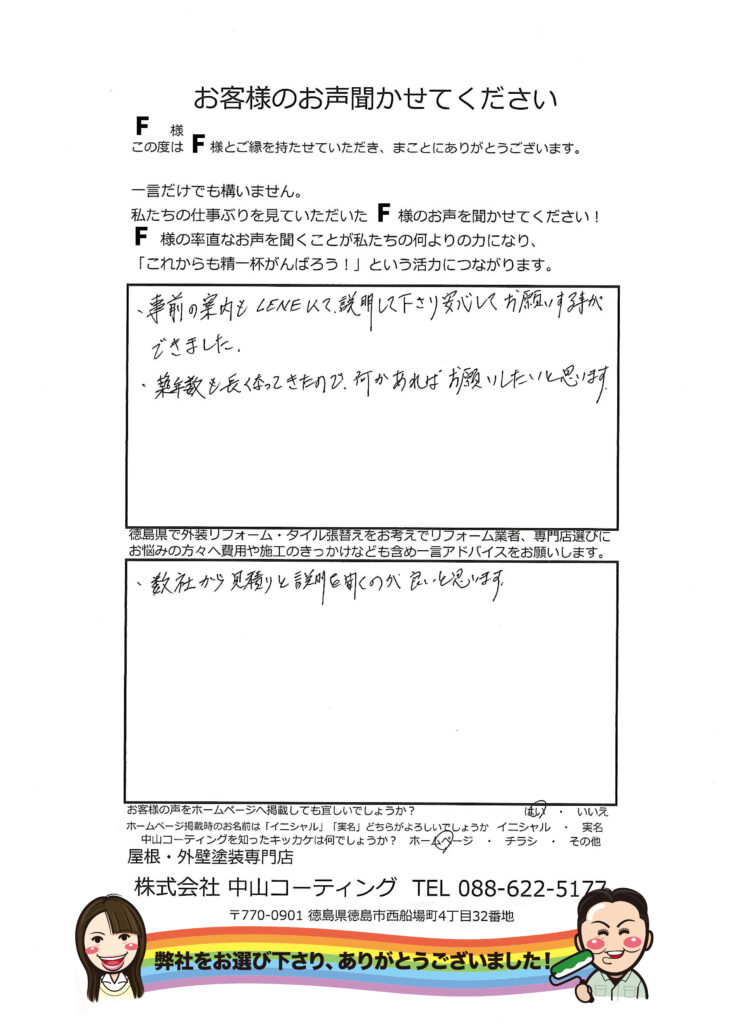 お客様のお声聞かせてください
F 様
この度は F 様とご縁を持たせていただき、まことにありがとうございます。
一言だけでも構いません。
私たちの仕事ぶりを見ていただいた F 様のお声を聞かせてください！
F 様の率直なお声を聞くことが私たちの何よりの力になり、
「これからも精一杯がんばろう！」という活力につながります。
・事前の案内も LENEにて、説明して下さり安心してお願いする事が
できました。
・築年数も長くなってきたので、何かあればお願いしたいと思います。
徳島県で外装リフォーム・タイル張替えをお考えでリフォーム業者、専門店選びに
お悩みの方々へ費用や施工のきっかけなども含め一言アドバイスをお願いします。
・数社から見積りと説明を聞くのが良いと思います。
お客様の声をホームページへ掲載しても宜しいでしょうか？ はい ・ いいえ
ホームページ掲載時のお名前は「イニシャル」「実名」どちらがよろしいでしょうか イニシャル ・ 実名
中山コーティングを知ったキッカケは何でしょうか？ ホームページ ・ チラシ ・ その他
屋根・外壁塗装専門店
株式会社 中山コーティング TEL 088-622-5177
〒770-0901 徳島県徳島市西船場町4丁目32番地
弊社をお選び下さり、ありがとうございました！